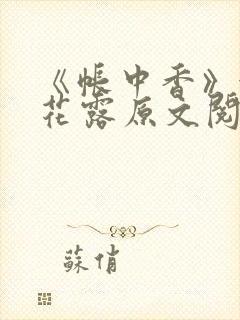 《帐中香》
花露原文阅
蘇俏